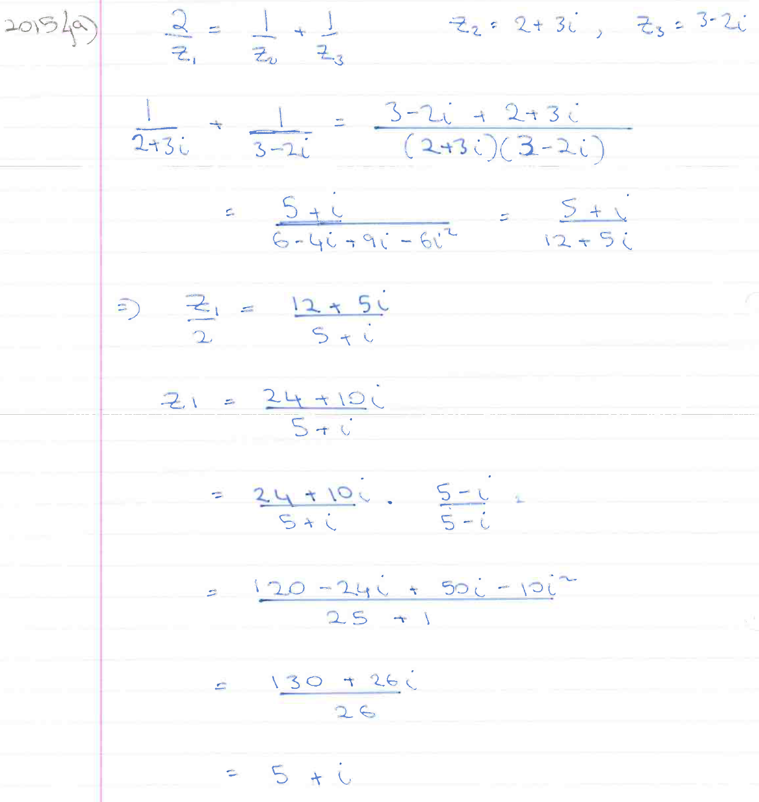 2015 4(a) 2/z₁ = 1/z₂ + 1/z₃ z₂ = 2+3i , z₃ = 3-2i
1/(2+3i) + 1/(3-2i) = (3-2i + 2+3i)/((2+3i)(3-2i))
= (5+i)/(6-4i+9i-6i²) = (5+i)/(12+5i)
⇒ z₁/2 = (12+5i)/(5+i)
z₁ = (24+10i)/(5+i)
= (24+10i)/(5+i) . (5-i)/(5-i) =
= (120-24i + 50i-10i²)/(25+1)
= (130+26i)/26
= 5 + i